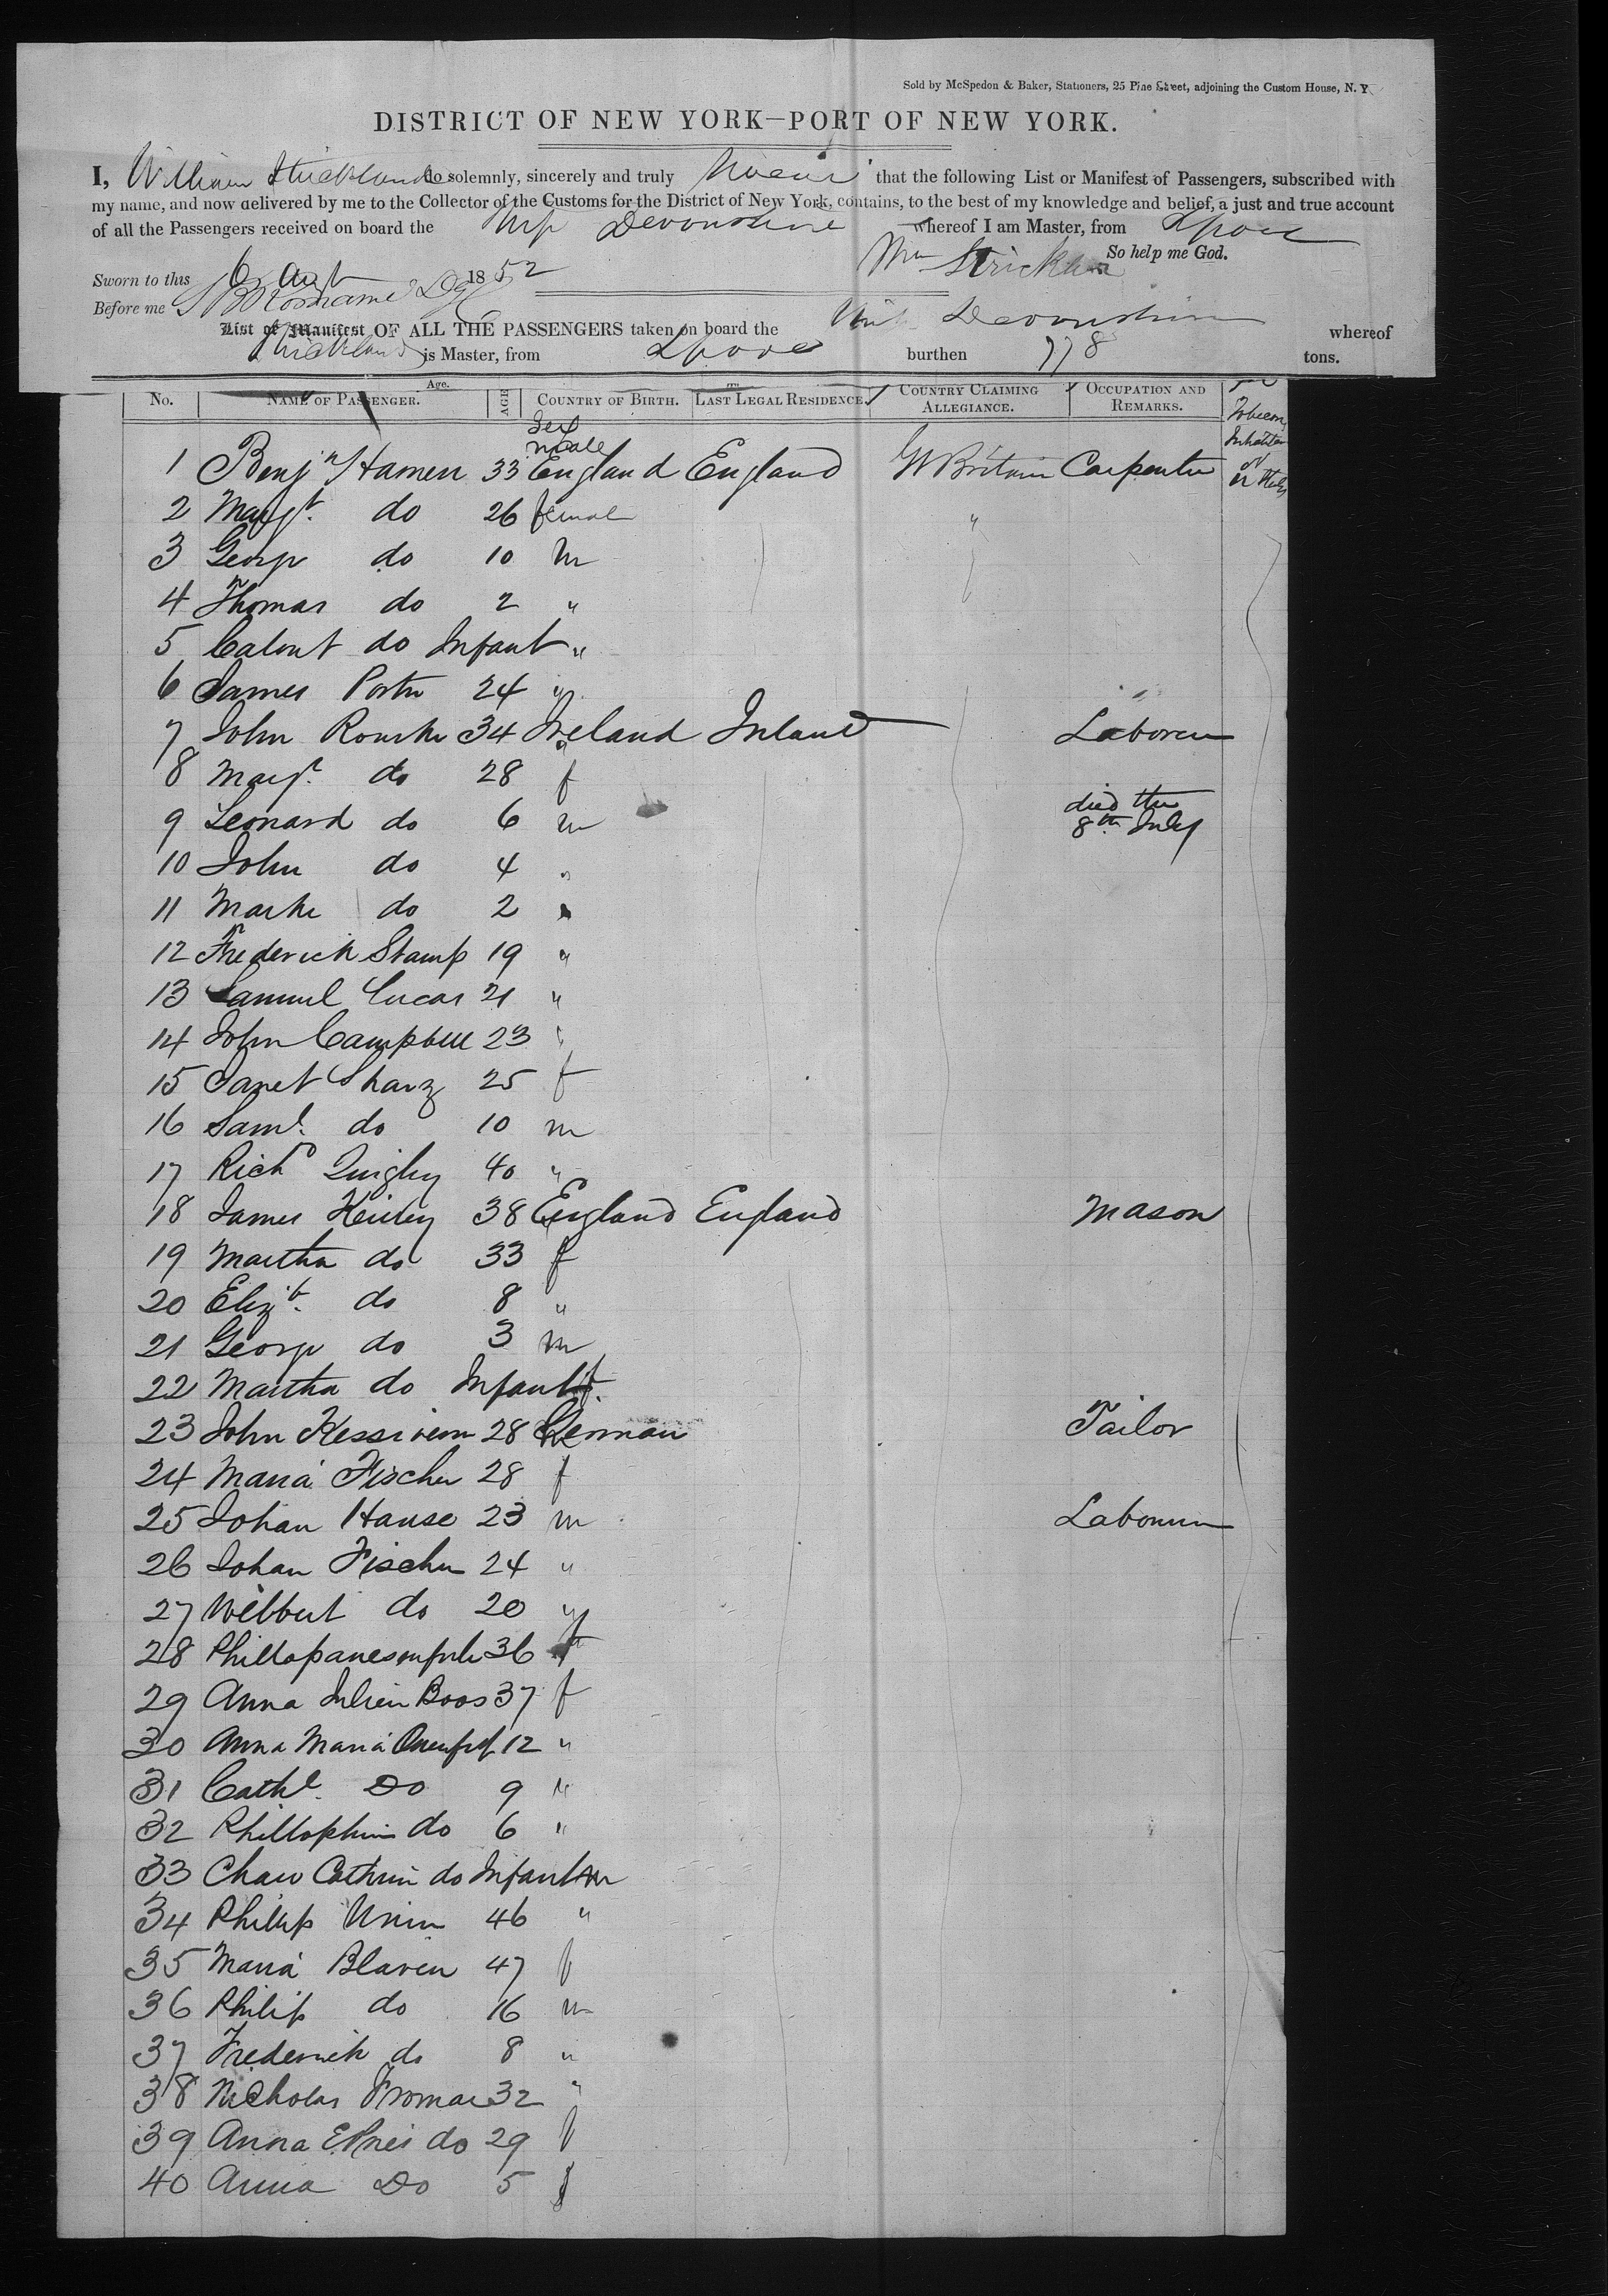 Sold by McSpedon & Baker, Stationers, 25 Pine Street, adjoining the Custom House, N. Y
DISTRICT OF NEW YORK—PORT OF NEW YORK.
I, William Strickland do solemnly, sincerely and truly swear that the following List or Manifest of Passengers, subscribed with
my name, and now delivered by me to the Collector of the Customs for the District of New York, contains, to the best of my knowledge and belief, a just and true account
of all the Passengers received on board the Ship Devonshire whereof I am Master, from Lpool
Wm Strickland So help me God.
Sworn to this 6 Augt 1852
Before me
List or Manifest OF ALL THE PASSENGERS taken on board the Ship Devonshire whereof
Strickland is Master, from Lpool burthen 778 tons.
Age.
No. NAME OF PASSENGER. AGE COUNTRY OF BIRTH. LAST LEGAL RESIDENCE. COUNTRY CLAIMING ALLEGIANCE. OCCUPATION AND REMARKS. To become Inhabitan of U States
Sex
male
1 Benjn Hamen 33 England England Gt Britain Carpenter
2 Margt. do 26 female "
3 George do 10 m
4 Thomas do 2 "
5 do Infant "
6 James Porter 24 "
7 John Rourke 34 Ireland Ireland Laborer
8 Margt. do 28 f
9 Leonard do 6 m died the 8th July
10 John do 4 "
11 do 2 "
12 Frederick Stamp 19 "
13 Samuel Lucas 21 "
14 John Campbell 23 "
15 Janet 25 f
16 Saml. do 10 m
17 Richd Quigley 40 "
18 James 38 England England Mason
19 Martha do 33 f
20 Elizt. do 8 "
21 George do 3 m
22 Martha do Infant f.
23 John 28 German Tailor
24 Maria Fischer 28 f
25 Johan Hause 23 m Laborer
26 Johan Fischer 24 "
27 Wilbert do 20 "
28 36
29 Anna Boos 37 f
30 Anna Maria 12 "
31 Cath. Do 9 "
32 do 6 "
33 do Infant m
34 Philip 46 "
35 Maria Blaven 47 f
36 Philip do 16 m
37 Frederick do 8 "
38 Nicholas 32 "
39 Anna do 29 f
40 Anna Do 5 f